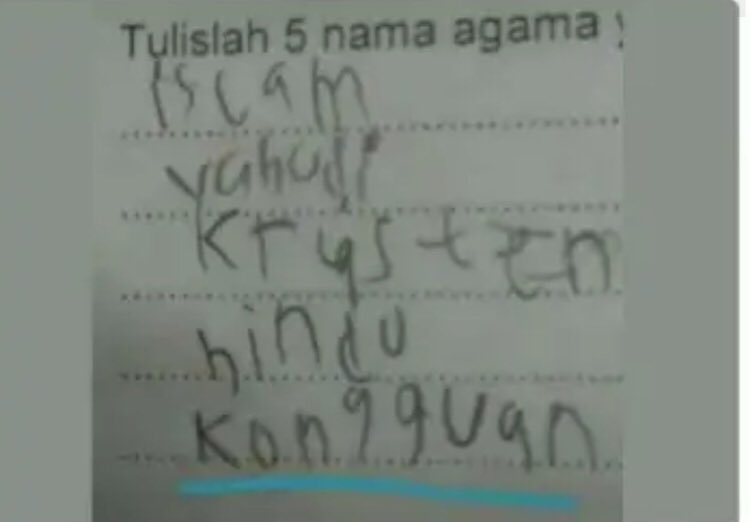 Tulislah 5 nama agama
Iscam
yahudi
Krysten
hindu
Kongguan